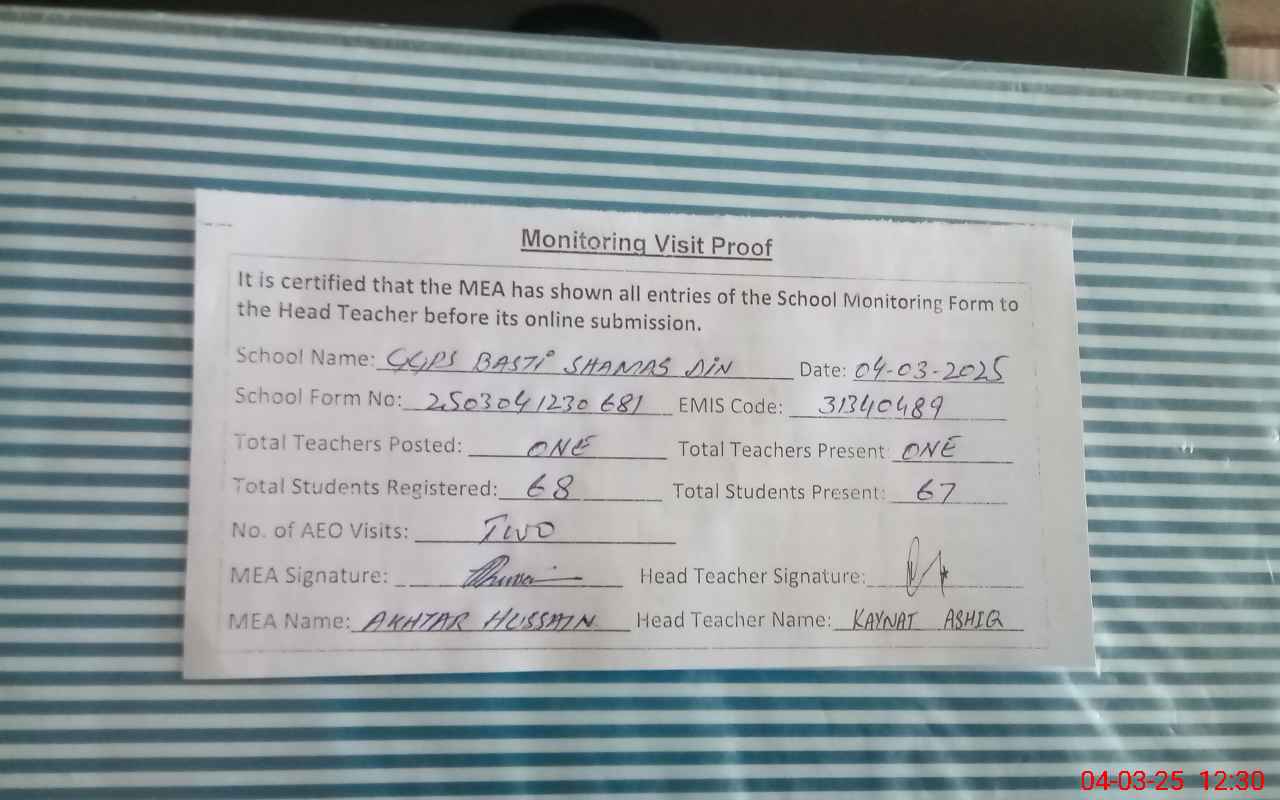 Monitoring Visit Proof
It is certified that the MEA has shown all entries of the School Monitoring Form to
the Head Teacher before its online submission.
School Name: GGPS BASTI SHAMAS DIN Date: 04-03-2025
School Form No: 2503041230681 EMIS Code: 31340489
Total Teachers Posted: ONE Total Teachers Present: ONE
Total Students Registered: 68 Total Students Present: 67
No. of AEO Visits: TWO
MEA Signature: Head Teacher Signature:
MEA Name: AKHTAR HUSSAIN Head Teacher Name: KAYNAT ASHIQ
04-03-25 12:30